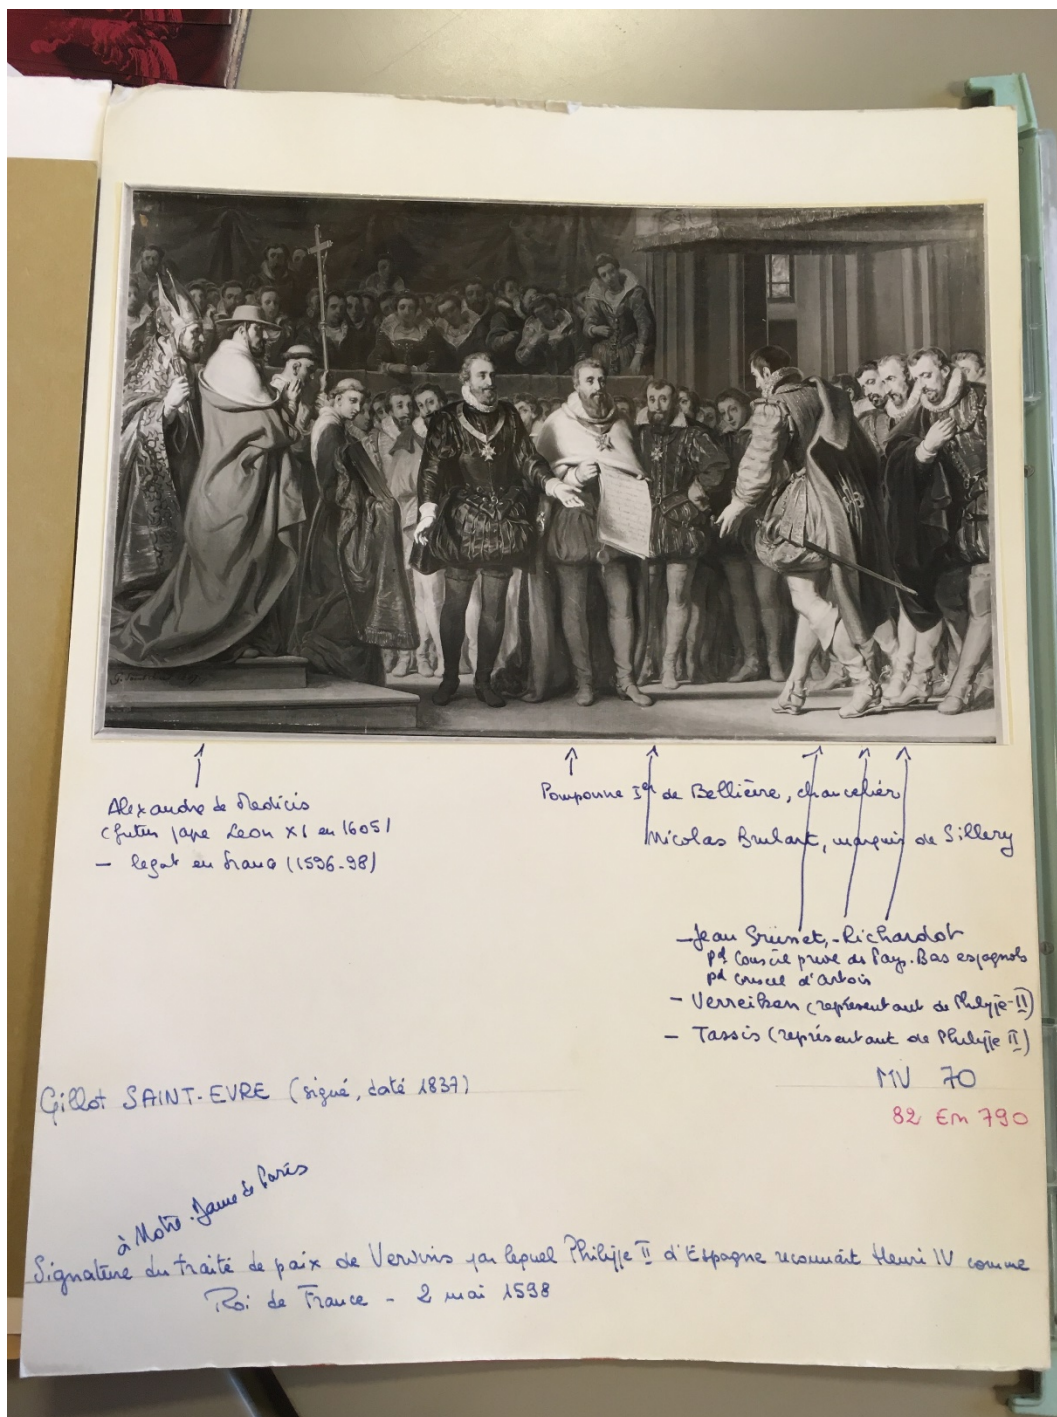 Alexandre de Medicis
(futur pape Leon XI en 1605)
- legat en France (1596-98)
Pomponne Ier de Bellièvre, chancelier
Nicolas Brulart, marquis de Sillery
- Jean Grusset,-Richardot
pdt Conseil privé des Pays-Bas espagnols
pdt conseil d'Artois
- Verreiken (représentant de Philippe II)
- Tassis (représentant de Philippe II)
MV 70
82 Em 790
Gillot SAINT-EVRE (signé, daté 1837)
à Notre-Dame de Paris
Signature du traité de paix de Vervins par lequel Philippe II d'Espagne reconnaît Henri IV comme
Roi de France - 2 mai 1598